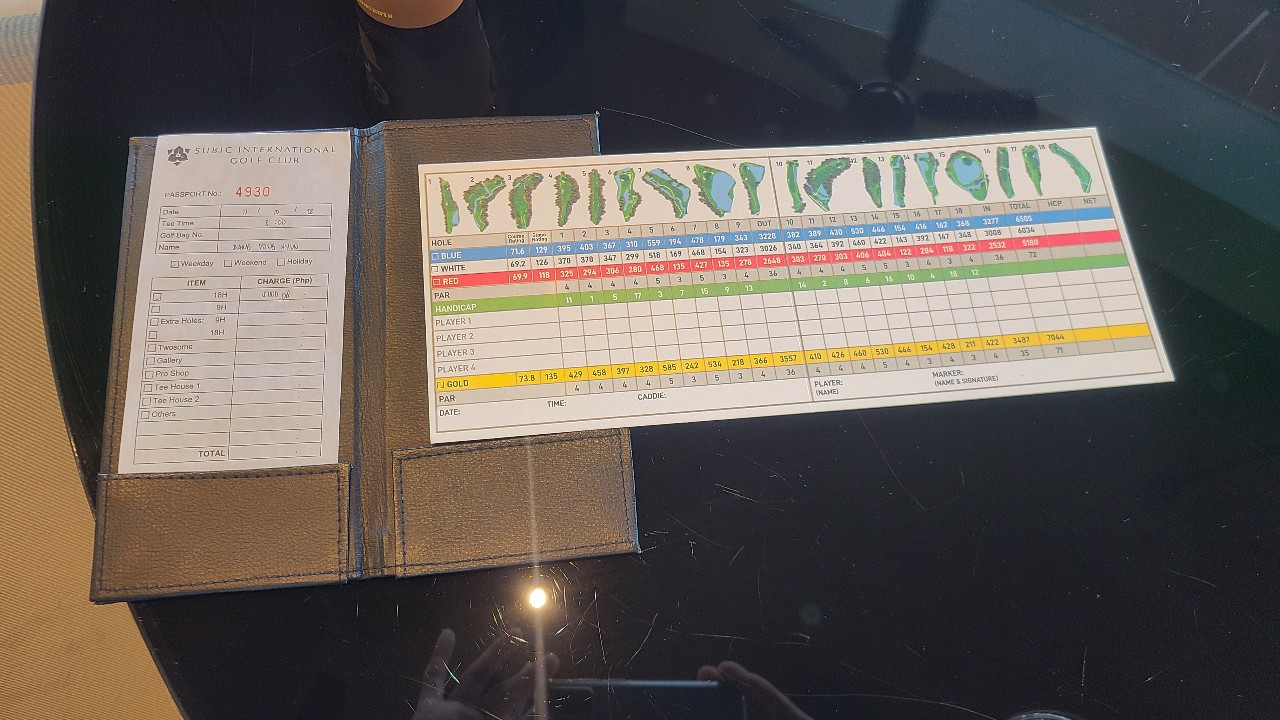 SUBIC INTERNATIONAL
GOLF CLUB
PASSPORT No.: 4930
Date
Tee Time
Golf Bag No.
Name
Weekday Weekend Holiday
ITEM CHARGE (Php)
18H
9H
Extra Holes: 9H
18H
Twosome
Gallery
Pro Shop
Tee House 1
Tee House 2
Others
TOTAL
1 2 3 4 5 6 7 8 9 10 11 12 13 14 15 16 17 18
HOLE Course Rating Slope Rating 1 2 3 4 5 6 7 8 9 OUT 10 11 12 13 14 15 16 17 18 IN TOTAL HCP NET
BLUE 71.6 129 395 403 367 310 559 194 478 179 343 3228 382 389 430 530 446 154 416 162 368 3277 6505
WHITE 69.2 126 370 378 347 299 518 169 468 154 323 3026 340 364 392 460 422 143 392 147 348 3008 6034
RED 69.9 118 325 294 306 280 468 135 427 135 278 2648 303 270 303 406 404 122 284 118 322 2532 5180
PAR 4 4 4 4 5 3 5 3 4 36 4 4 4 5 5 3 4 3 4 36 72
HANDICAP 11 1 5 17 3 7 15 9 13 14 2 8 6 16 10 4 18 12
PLAYER 1
PLAYER 2
PLAYER 3
PLAYER 4
GOLD 73.8 135 429 458 397 328 585 242 534 218 366 3557 410 426 460 530 446 154 428 211 422 3487 7044
PAR 4 4 4 4 5 3 5 3 4 36 4 4 4 5 4 3 4 3 4 35 71
DATE: TIME: CADDIE: PLAYER: (NAME) MARKER: (NAME & SIGNATURE)